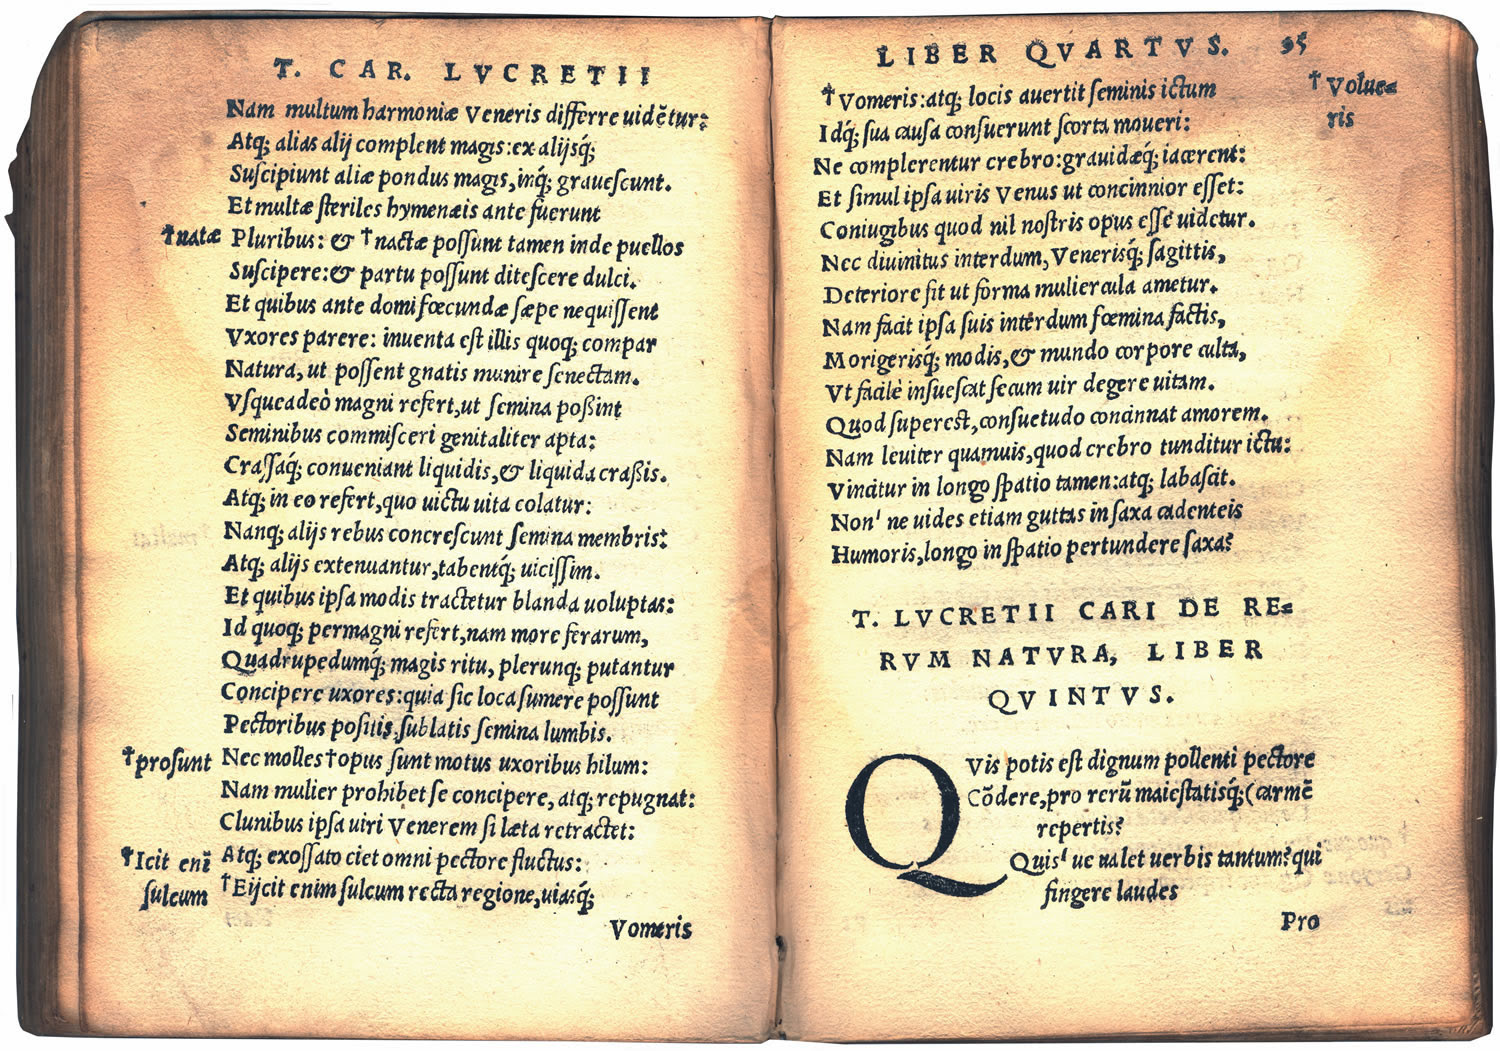 T. CAR. LVCRETII
Nam multum harmoniæ Veneris differre uidētur:
Atq; alias alij complent magis:ex alijsq́;
Suſcipiunt aliæ pondus magis,inq́; graueſcunt.
Et multæ ſteriles hymenæis ante fuerunt
†natæ Pluribus: & †nactæ poſſunt tamen inde puellos
Suſcipere:& partu poſſunt diteſcere dulci.
Et quibus ante domi fœcundæ ſæpe nequiſſent
Vxores parere: inuenta eſt illis quoq; compar
Natura, ut poſſent gnatis munire ſenectam.
Vſqueadeò magni refert,ut ſemina poßint
Seminibus commiſceri genitaliter apta:
Craſſaq́; conueniant liquidis,& liquida craßis.
Atq; in eo refert,quo uictu uita colatur:
Nanq; alijs rebus concreſcunt ſemina membris:
Atq; alijs extenuantur,tabentq́; uiciſſim.
Et quibus ipſa modis tractetur blanda uoluptas:
Id quoq; permagni refert,nam more ferarum,
Quadrupedumq́; magis ritu, plerunq; putantur
Concipere uxores:quia ſic loca ſumere poſſunt
Pectoribus poſitis,ſublatis ſemina lumbis.
†proſunt Nec molles†opus ſunt motus uxoribus hilum:
Nam mulier prohibet ſe concipere, atq; repugnat:
Clunibus ipſa uiri Venerem ſi læta retractet:
†Icit enī Atq; exoſſato ciet omni pectore fluctus:
ſulcum †Eijcit enim ſulcum recta regione,uiasq́;
Vomeris
LIBER QVARTVS. 95
†Vomeris:atq; locis auertit ſeminis ictum †Volue=
Idq́; ſua cauſa conſuerunt ſcorta moueri: ris
Ne complerentur crebro:grauidæq́; iacerent:
Et ſimul ipſa uiris Venus ut concinnior eſſet:
Coniugibus quod nil noſtris opus eſſe uidetur.
Nec diuinitus interdum, Venerisq́; ſagittis,
Deteriore fit ut forma muliercula ametur.
Nam facit ipſa ſuis interdum fœmina factis,
Morigerisq́; modis,& mundo corpore culta,
Vt facilè inſueſcat ſecum uir degere uitam.
Quod ſupereſt,conſuetudo concinnat amorem.
Nam leuiter quamuis,quod crebro tunditur ictu:
Vincitur in longo ſpatio tamen:atq; labaſcit.
Non' ne uides etiam guttas in ſaxa cadenteis
Humoris,longo in ſpatio pertundere ſaxa?
T. LVCRETII CARI DE RE=
RVM NATVRA, LIBER
QVINTVS.
QVis potis eſt dignum pollenti pectore
Cōdere,pro rerū maieſtatisq́;(carmē
repertis?
Quis' ue ualet uerbis tantum?qui
fingere laudes
Pro